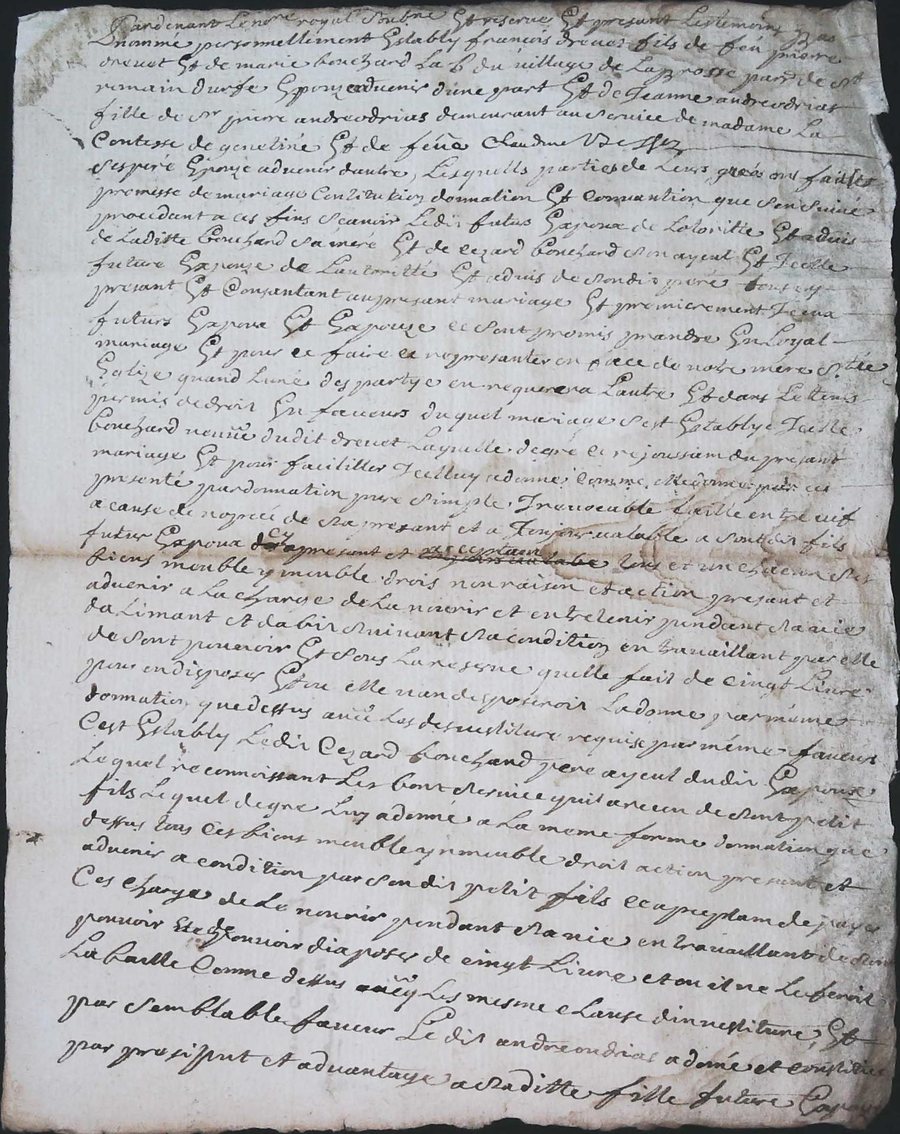 Pardenant Le nore royal Soubne Et reserve Et presant Les temoins bas
Nommé personnellement Estably francois drevet fils de feu pierre
drevet Et de marie bouchard La b du village de Labrosse parr de St
romain durfe Epouze advenir d'une part Et de Jeanne andreodrias
fille de Sr piere andreodrias demeurant au service de madame La
Contesse de Et de feue Claudine Besser
Sespere Epouze advenir dautre, Lesquells parties de Leurs gres ont faittes
promesse de mariage Constitution donnation Et convantion que Sensuive
procedant a ces fins Scavoir Ledit futur Expoux de Lotoritte Et advis
de Laditte bouchard Sa mere Et de cezard bouchard Son ayeul Et Icelle
future Expouze de Lautoritté Et advis de Sondit pere tous cy
presant Et Consantant au presant mariage Et premierement Iceux
futurs Expoux Et Expouze ce Sont promis prandre En Loyal
mariage Et pour ce faire ce represanter en face de notre mere Ste
Eglize quand Lune des partye en requerera Lautre Et dans Le tems
permis de droit En faveurs du quel mariage Sest Establye Icelle
bouchard veuve dudit drevet Laquelle de gre ce rejouissam du presant
mariage Et pour facilliter Icelluy a donné comme elle donne par ces
presenté par donnation pure Simple Irrevocable faille entre vif
a cause de nopces de Sa presant et a Toujour valable a Sondit fils
futur Expoux cy presant et acceptant tous et un chacun Ses
biens meuble ymmeuble drois nom raison et action presant et
advenir a La charge de La nourir et entretenir pendant Sa vie
daliment et dabit Suivant Sa condition en travaillant par elle
de Sont pouvoir Et Sous La reserve quelle fait de cingt Livre
pour en disposer Et ou elle nan desposeroit La donne par meme
donnation que dessus avec Les desvestiture requise par même faveurs
Cest Estably Ledit Cezard bouchard pere ayeul dudit Expoux
Lequel reconnoissant Les bont Service quil a receu de Sont petit
fils Lequel de gre Luy a donné a La meme forme donnation que
dessus tous Ces biens meuble ynmeuble droit action presant et
advenir a condition par Sondit petit fils ce acpeptam de payer
Ces charge de Le nourir pendant Sa vie en travaillant de Son
pouvoir Et de pouvoir diaposer de cingt Livre et ou il ne Le feroit
La baille Comme dessus avecq Les mesme clause dinvestiture, Et
par Semblable faveur Ledit andreondrias a donné et constitue
par presiput et advantage a Saditte fille future Expouze